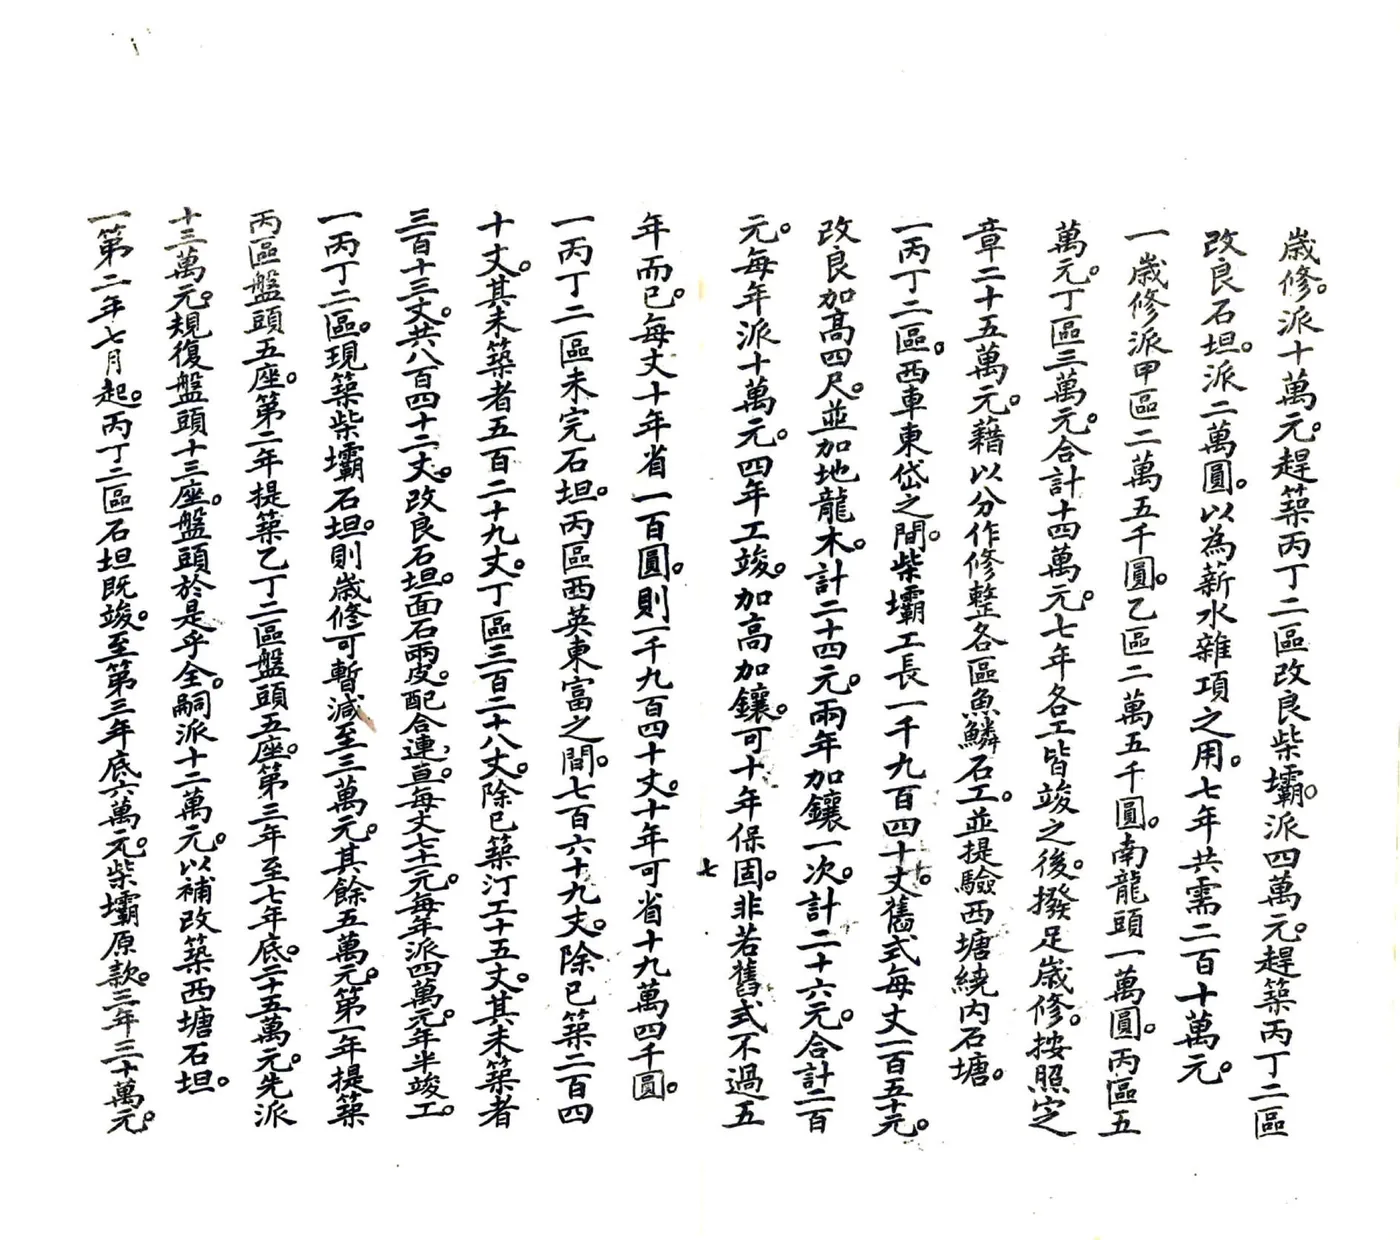 歲修。派十萬元。趕築丙丁二區改良柴壩。派四萬元。趕築丙丁二區
改良石坦。派二萬圓。以為薪水雜項之用。七年共需二百十萬元。
一歲修派甲區二萬五千圓。乙區二萬五千圓。南龍頭一萬圓。丙區五
萬元。丁區三萬元。合計十四萬元。七年各工皆竣之後。撥足歲修。按照定
章二十五萬元。藉以分作修整各區魚鱗石工。並提驗西塘繞內石塘。
一丙丁二區。西車東岱之間。柴壩工長一千九百四十丈。舊式每丈一百五十元。
改良加高四尺。並加地龍木。計二十四元。兩年加鑲一次。計二十六元。合計二百
元。每年派十萬元。四年工竣。加高加鑲。可十年保固。非若舊式不過五
年而已。每丈十年省一百圓。則一千九百四十丈。十年可省十九萬四千圓。
一丙丁二區未完石坦。丙區西英東富之間。七百六十九丈。除已築二百四
十丈。其未築者五百二十九丈。丁區三百二十八丈。除已築汀工十五丈。其未築者
三百十三丈。共八百四十二丈。改良石坦。面石兩皮。配合連真。每丈七十元。每年派四萬元。年半竣工。
一丙丁二區。現築柴壩石坦。則歲修可暫減至三萬元。其餘五萬元。第一年提築
丙區盤頭五座。第二年提築乙丁二區盤頭五座。第三年至七年底。二十五萬元。先派
十三萬元。規復盤頭十三座。盤頭於是乎全。嗣派十二萬元。以補改築西塘石坦。
一第二年七月起。丙丁二區石坦既竣。至第三年底六萬元。柴壩原款。三年三十萬元。
七